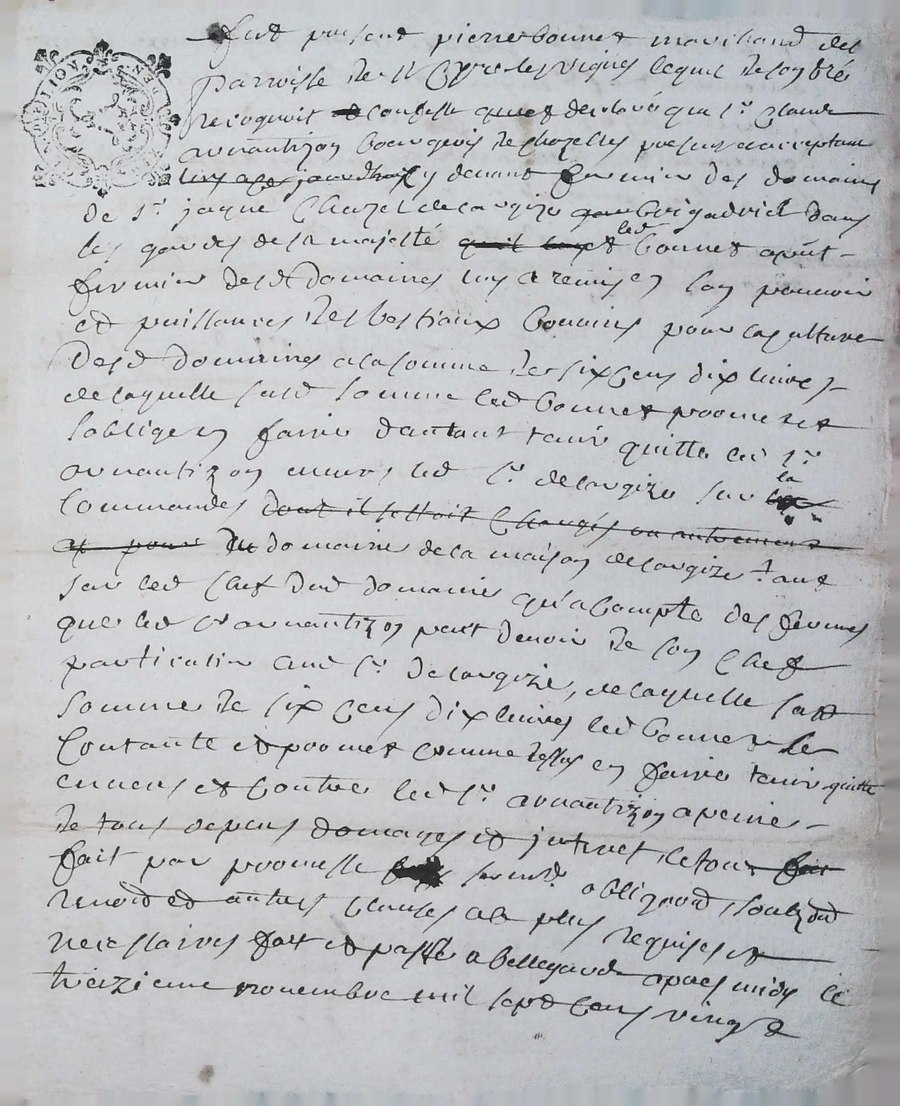 fut present pierre bonnet marchand de
parroisse de St Cyr les vignes lequel de son gré
recognoit et confesse declaré que sr Claude
avnantizon bourgeois de chazelles present acceptant
cy devant fermier des domaines
de sr jaque Chazel delargize brigadier dans
les gardes de sa majesté led bonnet aprest
fermier desd domaines luy a remis en son pouvoir
et puissances des bestiaux bouvins pour la culture
desd domaines a la somme de six cens dix livres
de laquelle susd somme led bonnet promet et
soblige en faire dautant tenir quitte led sr
avnantizon envers led sr delargize sur la
Commandes dont il sestoit Chargés ou autrement
et pour du domaine de la maison delargize tant
sur led Chef dud domaine qu'a Compte des fermes
que led sr avnantizon peut devoir de son Chef
particulier aud sr delargize, de laquelle susd
somme de six cens dix livres led bonnet se
Contante et promet comme dessus en faire tenir quitte
envers et contre led sr avnantizon a peine
de tous depens domages et interest, le tout
fait par promesse serment obligaon, soubz
renoncd et autres clauses a la plus requises et
necessaires fait et passé a bellegarde apres midy le
treizieme novembre mil sept cens vingt